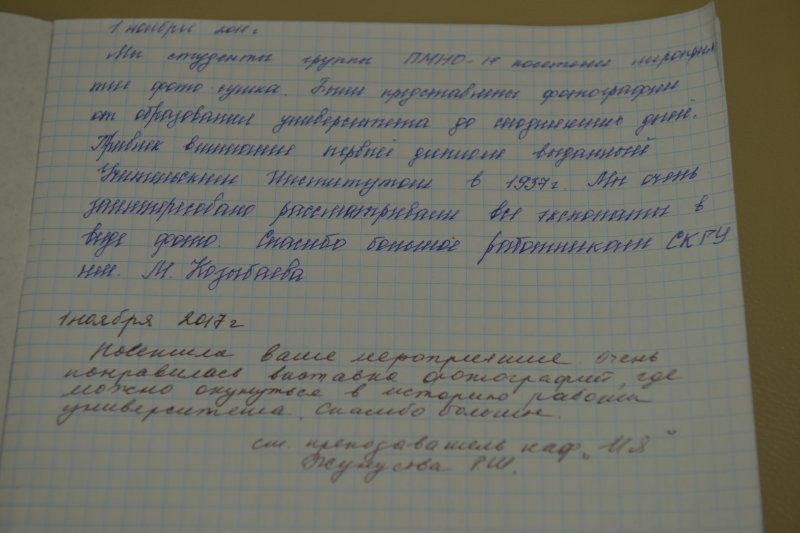 1 ноября 2017г
Мы студенты группы ПМНО-17 посетили мероприя
тие фото сушка. Были представлены фотографии
от образования университета до сегодняшних дней.
Привлек внимание первый диплом выданный
Учительским Институтом в 1937г. Мы очень
заинтересовано рассматривали все экспонаты в
виде фото. Спасибо большое работникам СКГУ
им. М. Козыбаева
1 ноября 2017 г
Посетила ваше мероприятие. Очень
понравилась выставка фотографий, где
можно окунуться в историю работы
университета. Спасибо большое.
ст. преподаватель каф „ИЯ"
Р.Ш.